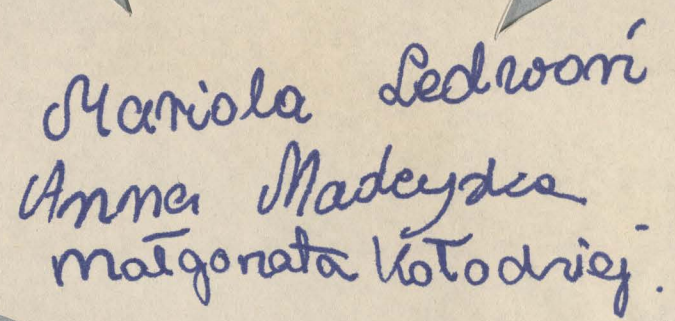 Mariola Ledwoń
Anna Madeyska
Małgorzata Kołodziej.